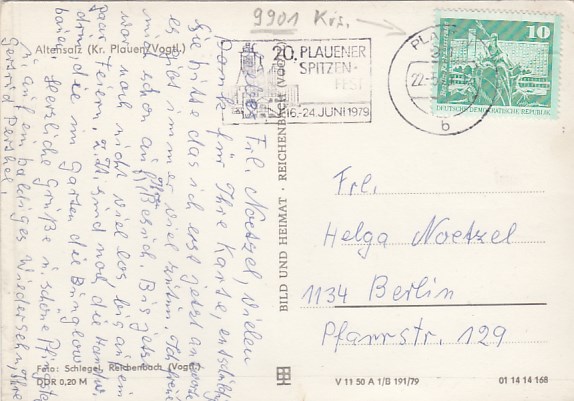 9901 Krs.
Altensalz (Kr. Plauen/Vogtl.)
20. PLAUENER
SPITZEN-
FEST
16.-24. JUNI 1979
PLAUEN
22.
b
10
DEUTSCHE DEMOKRATISCHE REPUBLIK
Frl. Noetzel, vielen
Dank für Ihre Karte, entschuldigen
Sie bitte das ich erst jetzt antworte
es gibt immer viel zu tun. Ich freue
mich schon auf Ihren Besuch. Bis jetzt
war noch nicht viel los, bis auf ein
paar Feiern, z. Zt. sind noch die Handw.
da, die im Garten die Bunglow
bauen. Herzliche Grüße u. schöne Pfingsten
u. auf ein baldiges Wiedersehn, Ihre
Gertrud
BILD UND HEIMAT · REICHENBACH (VOGTL)
Frl.
Helga Noetzel
1134 Berlin
Pfarrstr. 129
Foto: Schlegel, Reichenbach (Vogtl.)
DDR 0,20 M
V 11 50 A 1/B 191/79
01 14 14 168